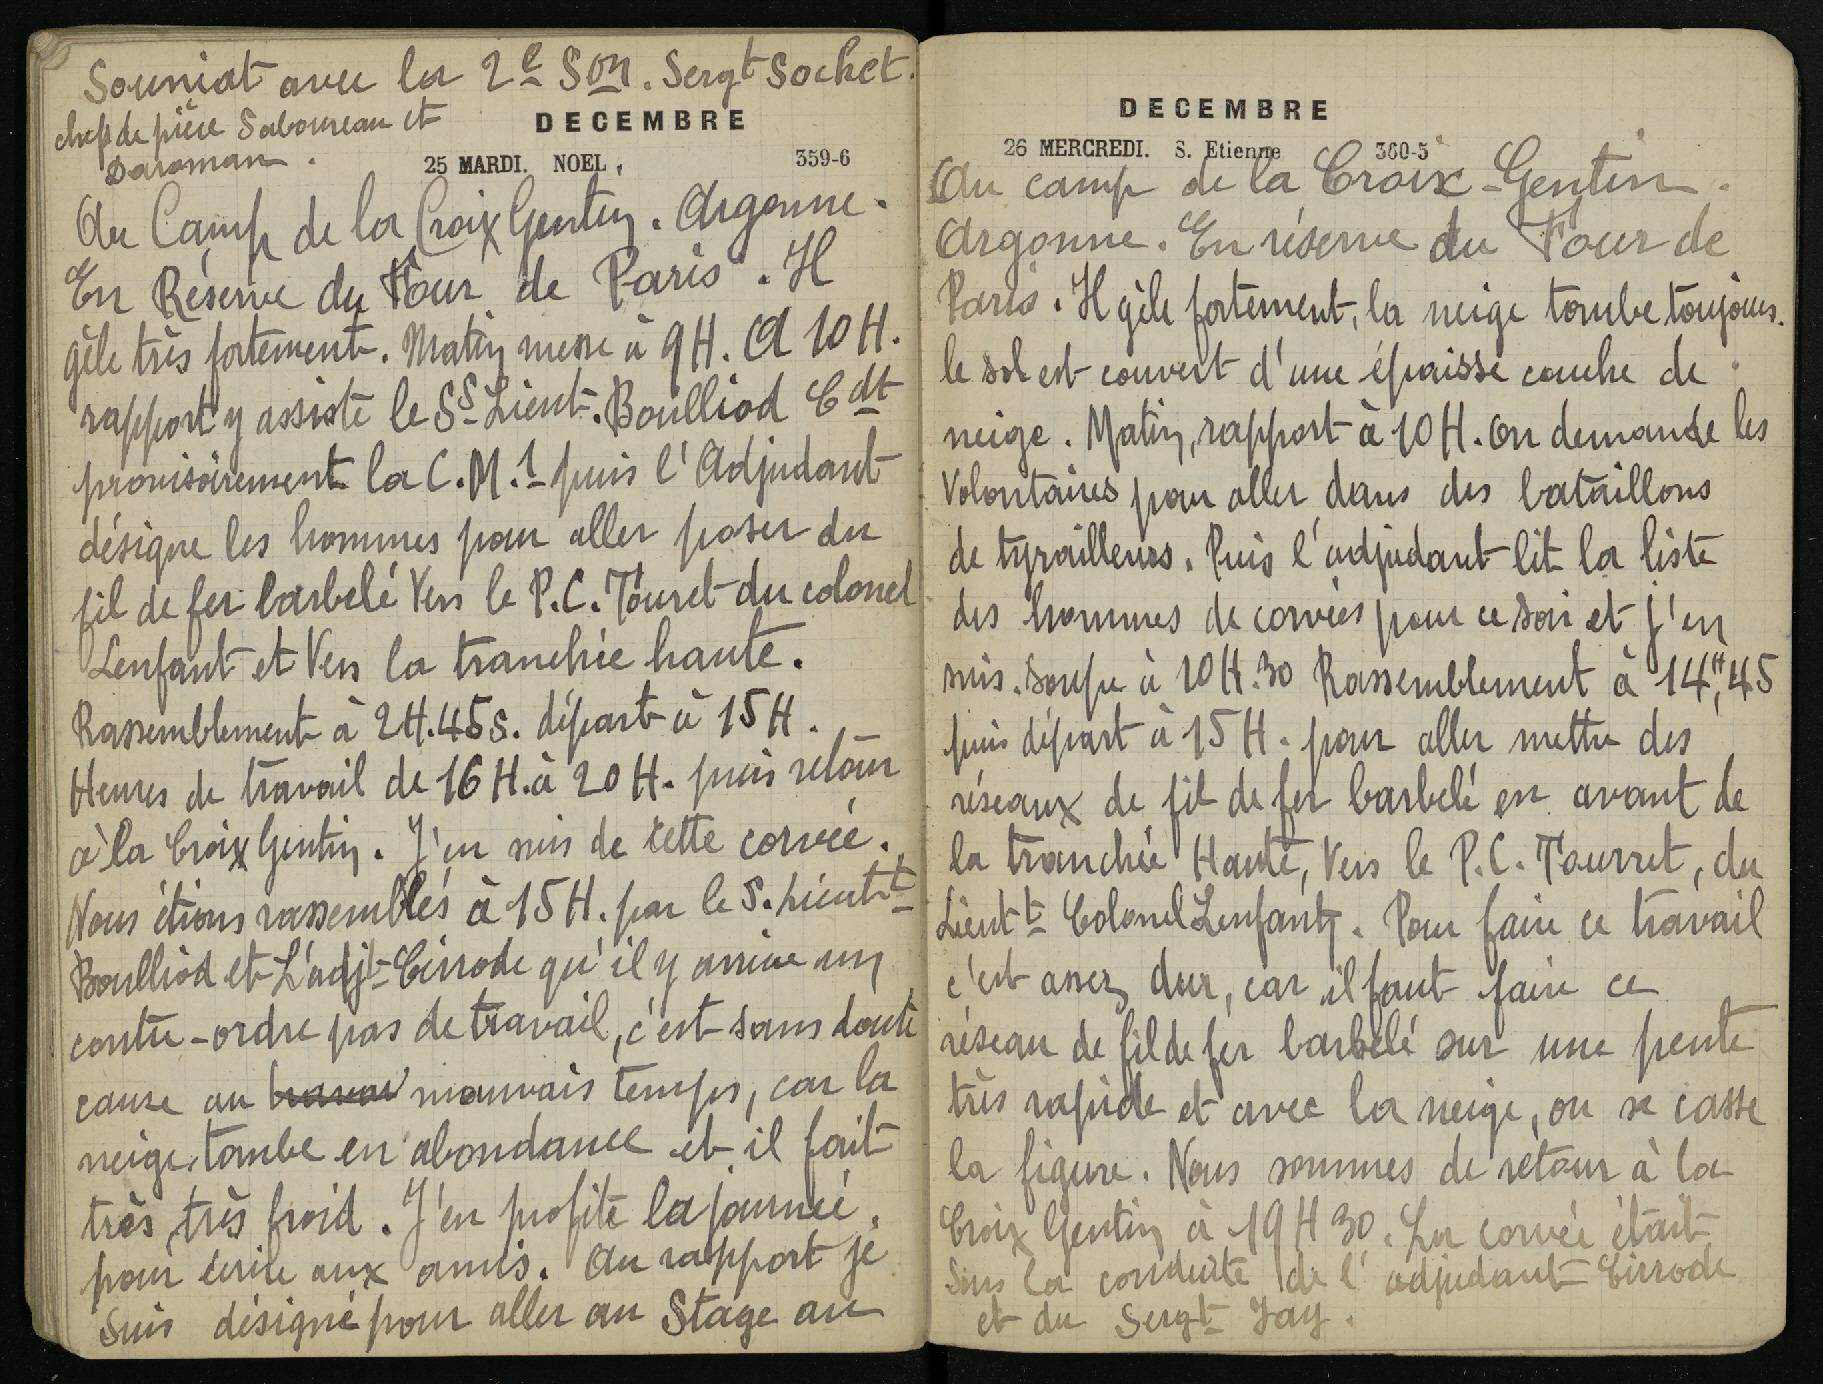 Souniat avec la 2e Son. Sergt Sochet.
chefs de pièce Saboureau et
Daroman.
DECEMBRE
25 MARDI. NOEL. 359-6
Au Camp de la Croix Gentin. Argonne.
En Réserve du Four de Paris. Il
gèle très fortement. Matin messe à 9H. A 10H.
rapport y assiste le Ss Lieut. Boulliod Cdt
provisoirement la C.M.1 puis l'Adjudant
désigne les hommes pour aller poser du
fil de fer barbelé Vers le P.C. Touret du colonel
Lenfant et Vers la tranchée haute.
Rassemblement à 2H.45 s. départ à 15H.
Heures de travail de 16H. à 20H. puis retour
à la Croix Gentin. J'en suis de cette corvée.
Nous étions rassemblés à 15H. par le S. Lieutt
Boulliod et L'adjt Cirrode qu'il y arrive un
contre-ordre pas de travail, c'est sans doute
cause au mauvais temps, car la
neige tombe en abondance et il fait
très, très froid. J'en profite la journée
pour écrire aux amis. Au rapport je
suis désigné pour aller au Stage au
DECEMBRE
26 MERCREDI. S. Etienne 360-5
Au camp de la Croix-Gentin.
Argonne. En réserve du Four de
Paris. Il gèle fortement, la neige tombe toujours.
le sol est couvert d'une épaisse couche de
neige. Matin, rapport à 10H. on demande les
Volontaires pour aller dans des bataillons
de tyrailleurs. Puis l'adjudant lit la liste
des hommes de corvées pour ce soir et j'en
suis. Soupe à 10H.30 Rassemblement à 14H,45
puis départ à 15H. pour aller mettre des
réseaux de fil de fer barbelé en avant de
la tranchée Haute, Vers le P.C. Tourret, du
Lieutt Colonel Lenfant. Pour faire ce travail
c'est assez dur, car il faut faire ce
réseau de fil de fer barbelé sur une pente
très rapide et avec la neige, on se casse
la figure. Nous sommes de retour à la
Croix Gentin à 19H30. La corvée était
sous la conduite de l'adjudant Cirrode
et du Sergt Jay.